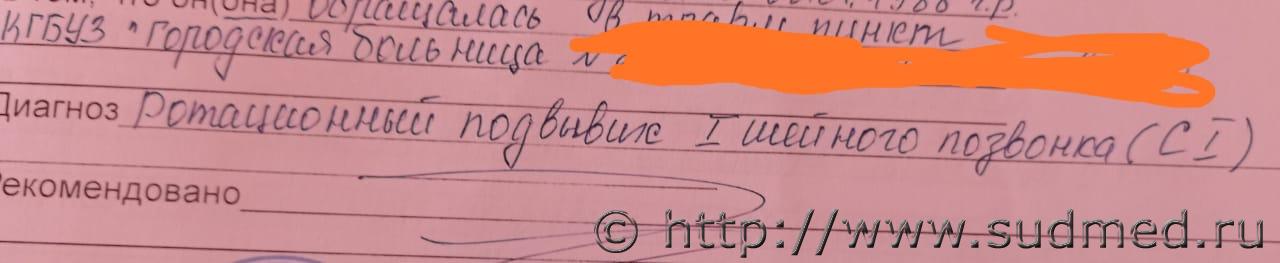 он(она) обращалась в травм пункт
КГБУЗ "Городская больница №
Диагноз Ротационный подвывих I шейного позвонка (CI)
Рекомендовано
© http://www.sudmed.ru